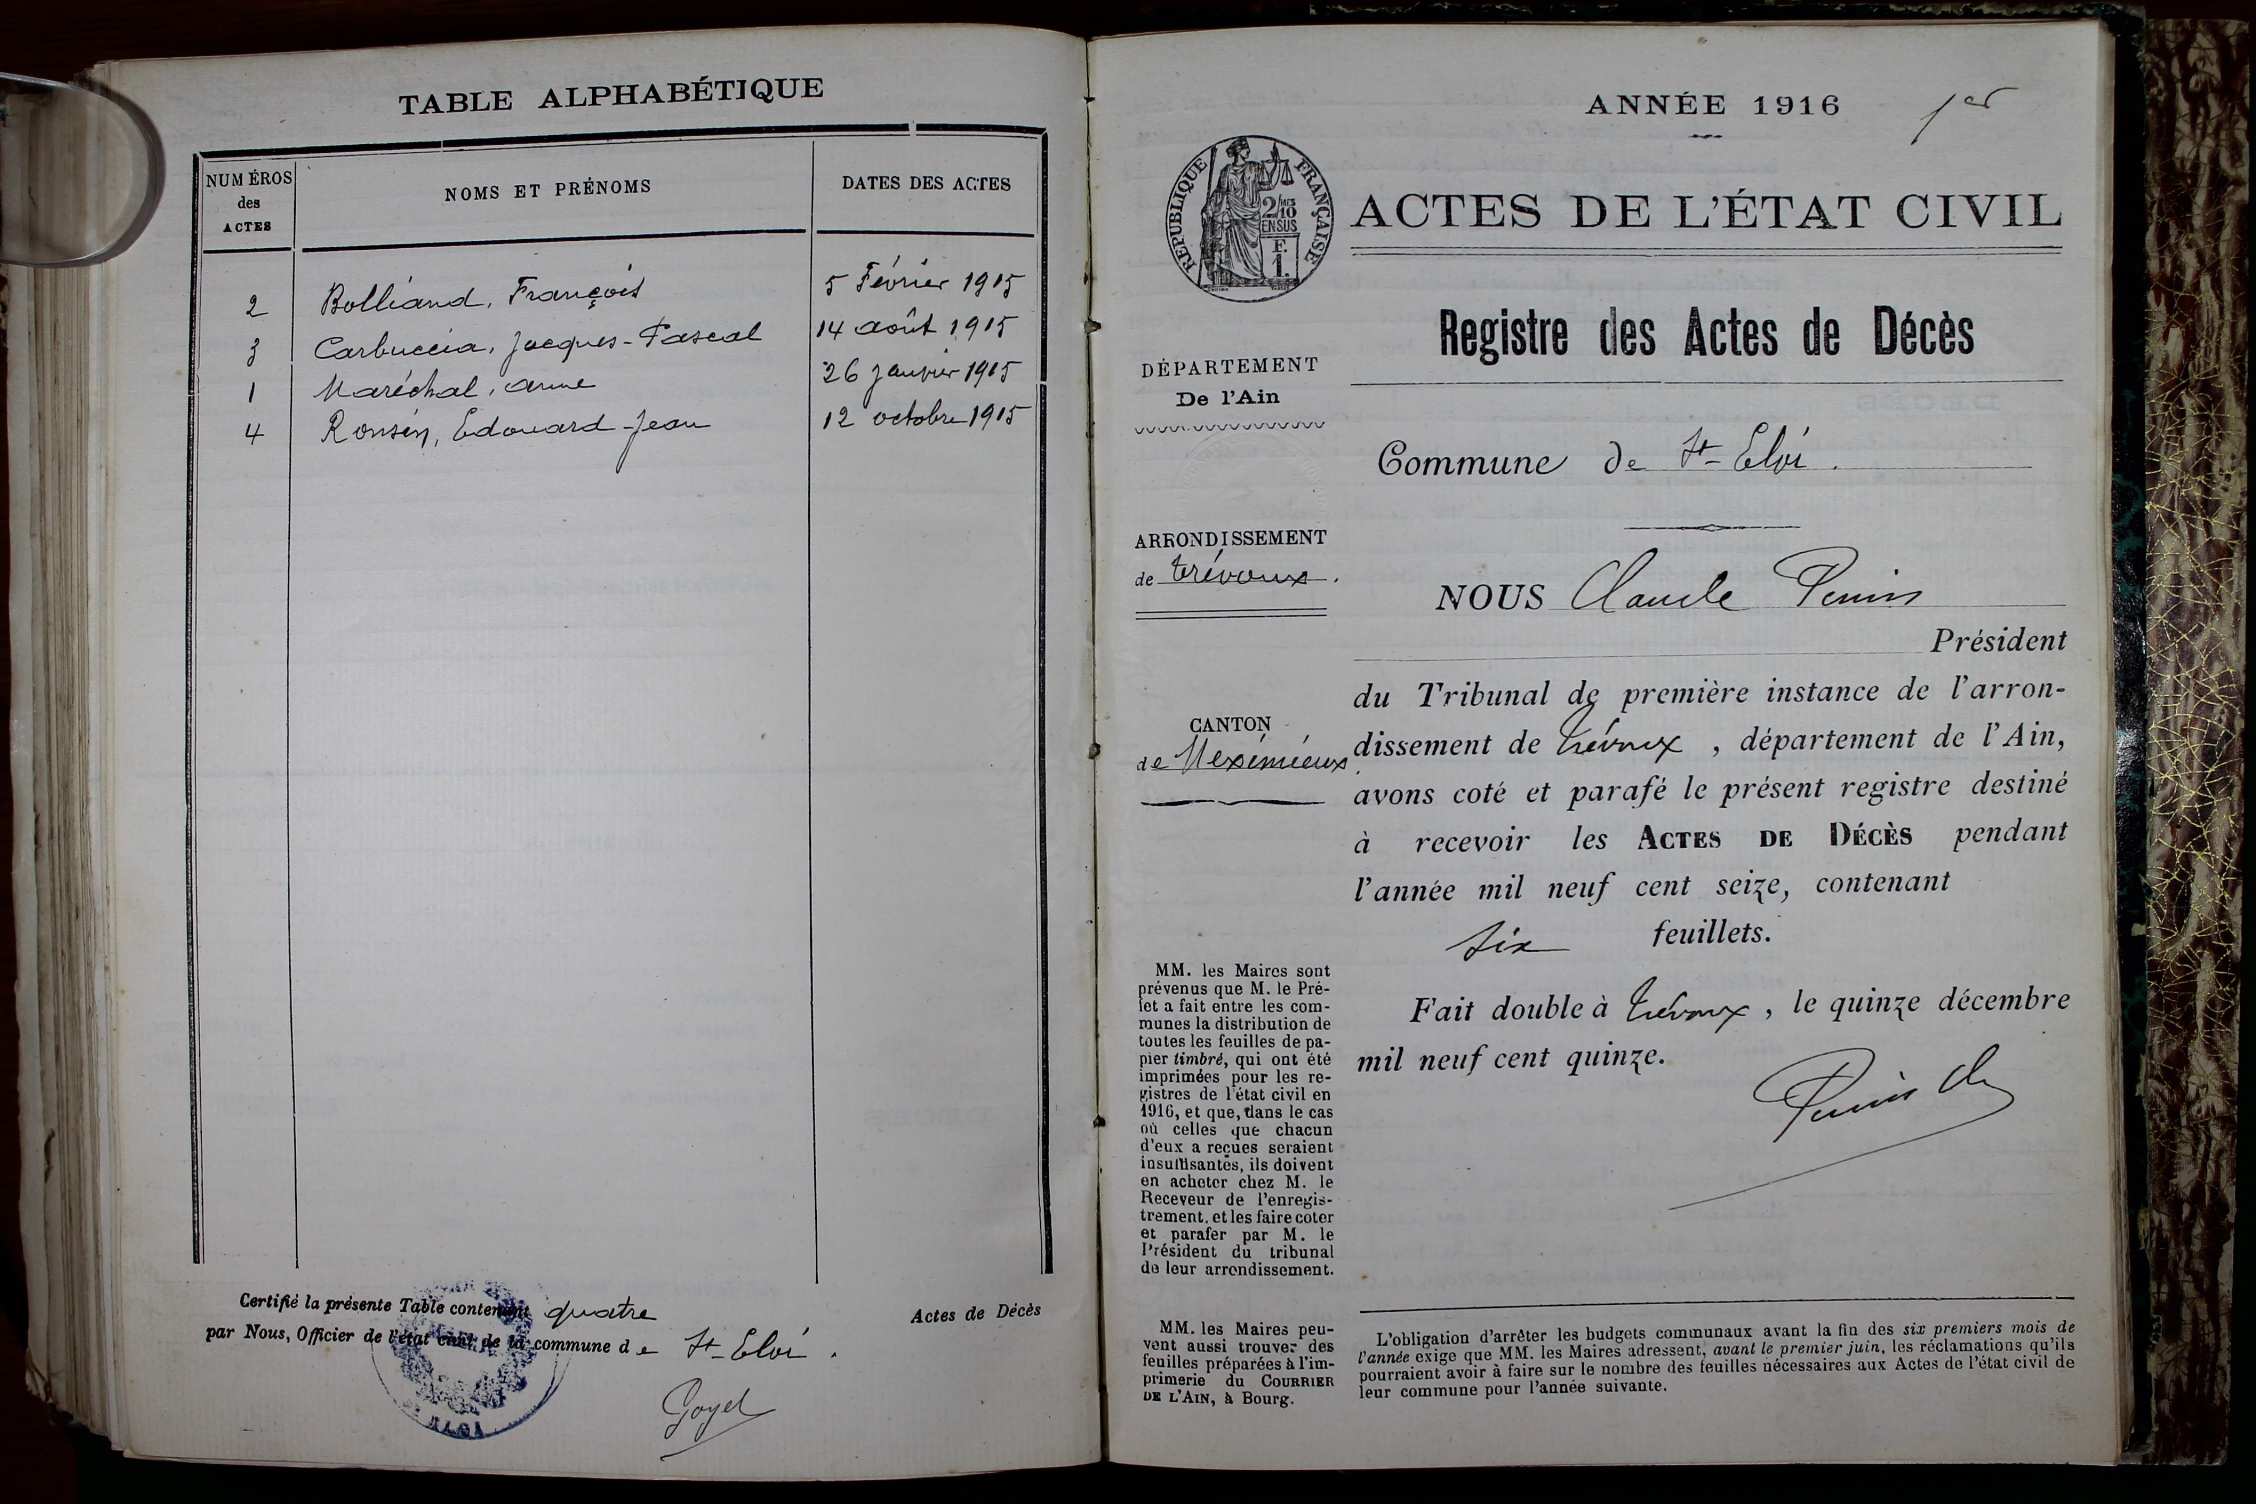 TABLE ALPHABÉTIQUE
NUMÉROS
des
ACTES
NOMS ET PRÉNOMS
DATES DES ACTES
2 Bolliand, François 5 Février 1915
3 Carbuccia, Jacques-Pascal 14 août 1915
1 Maréchal, anne 26 janvier 1915
4 Ronsin, Edouard-Jean 12 octobre 1915
Certifié la présente Table contenant quatre Actes de Décès
par Nous, Officier de l'état civil de la commune de St-Eloi.
Goyet
ANNÉE 1916
1er
RÉPUBLIQUE FRANÇAISE
2/10
EN SUS
F.
1.
ACTES DE L'ÉTAT CIVIL
Registre des Actes de Décès
DÉPARTEMENT
De l'Ain
Commune de St-Eloi.
ARRONDISSEMENT
de trévoux.
CANTON
de Meximieux
NOUS Claude
Président
du Tribunal de première instance de l'arron-
dissement de Trévoux, département de l'Ain,
avons coté et parafé le présent registre destiné
à recevoir les ACTES DE DÉCÈS pendant
l'année mil neuf cent seize, contenant
six feuillets.
Fait double à Trévoux, le quinze décembre
mil neuf cent quinze.
MM. les Maires sont
prévenus que M. le Pré-
fet a fait entre les com-
munes la distribution de
toutes les feuilles de pa-
pier timbré, qui ont été
imprimées pour les re-
gistres de l'état civil en
1916, et que, dans le cas
où celles que chacun
d'eux a reçues seraient
insuffisantes, ils doivent
en acheter chez M. le
Receveur de l'enregis-
trement, et les faire coter
et parafer par M. le
Président du tribunal
de leur arrondissement.
MM. les Maires peu-
vent aussi trouver des
feuilles préparées à l'im-
primerie du COURRIER
DE L'AIN, à Bourg.
L'obligation d'arrêter les budgets communaux avant la fin des six premiers mois de
l'année exige que MM. les Maires adressent, avant le premier juin, les réclamations qu'ils
pourraient avoir à faire sur le nombre des feuilles nécessaires aux Actes de l'état civil de
leur commune pour l'année suivante.